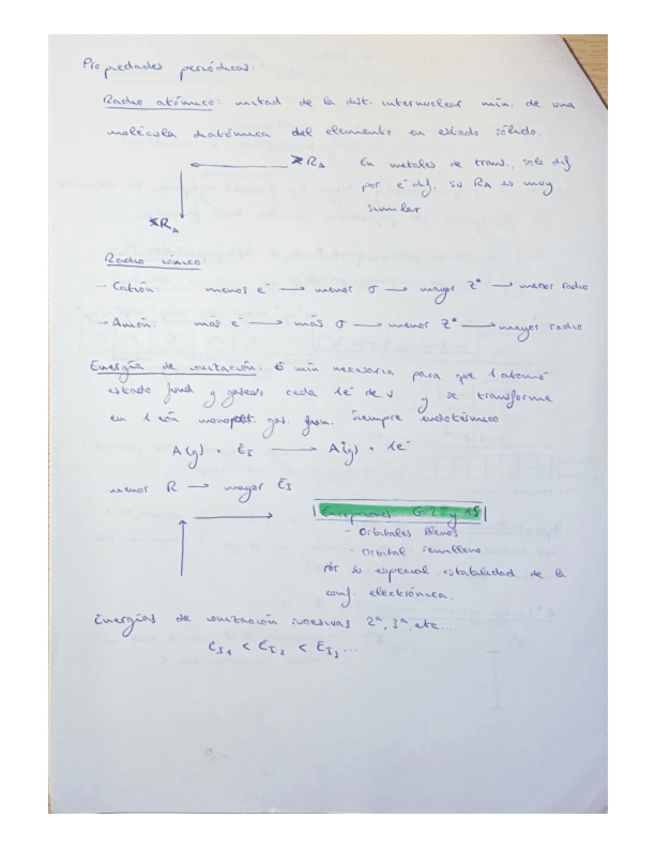 Propiedades periódicas:
Radio atómico: mitad de la dist. internuclear mín. de una
molécula diatómica del elemento en estado sólido.
>R_A
En metales de trans., solo dif.
por e⁻ dif. su R_A es muy
similar
>R_A
Radio iónico:
- Catión: menos e⁻ → menor σ → mayor Z* → menor radio
- Anión: más e⁻ → más σ → menor Z* → mayor radio
Energía de ionización: E mín necesaria para que 1 átomo
estado fund y gaseoso ceda 1e⁻ de v y se transforme
en 1 ión gas. fun. Siempre endotérmico
A(g) + E_I → A⁺(g) + 1e⁻
menor R → mayor E_I
Excepciones: G 2 y 15
- Orbitales llenos
- Orbital semilleno
Por su especial estabilidad de la
conf. electrónica.
Energías de ionización sucesivas 2ª, 3ª, etc...
E_I1 < E_I2 < E_I3...